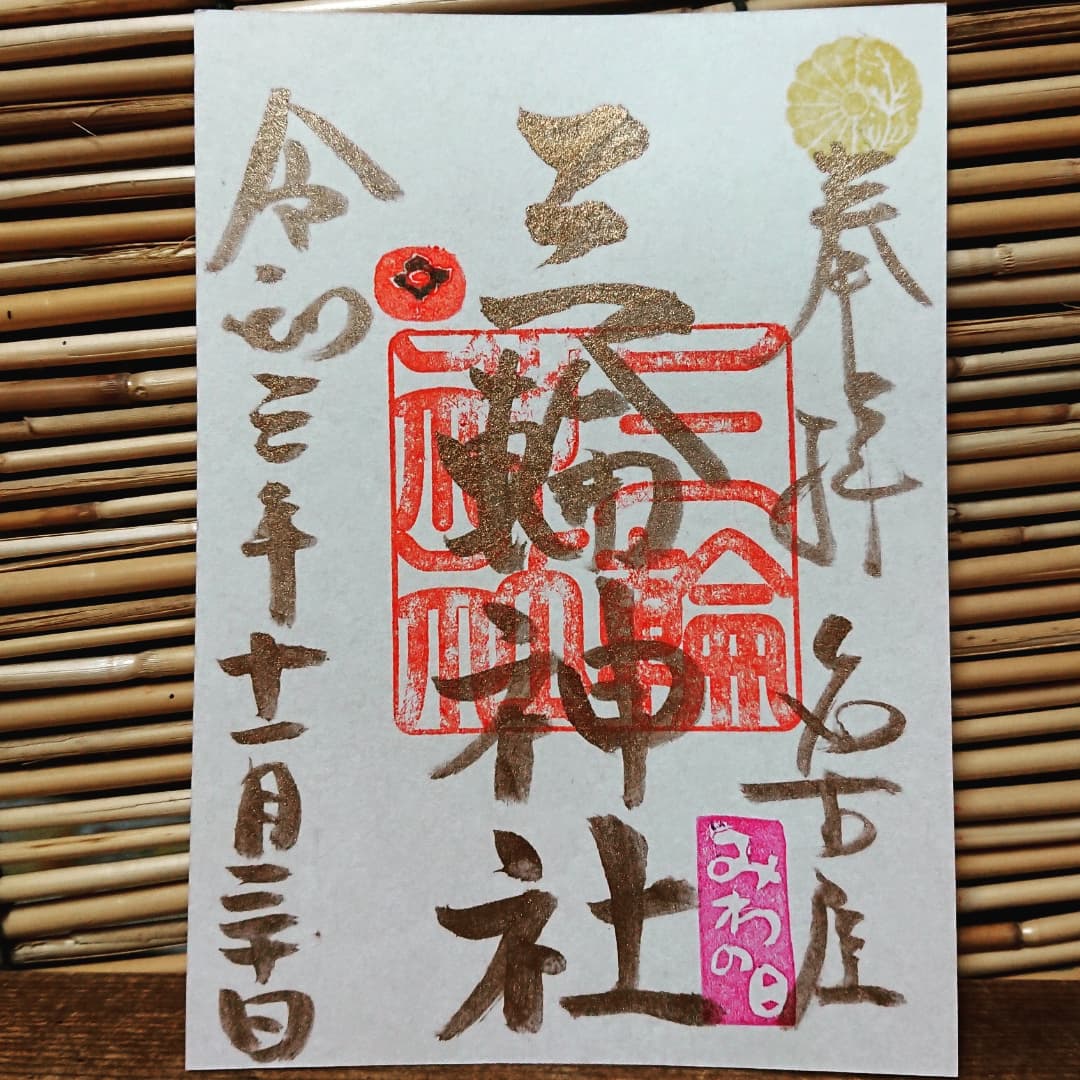 奉拝 名古屋
三輪神社
三輪
神社
みわの日
令和三年十一月三十日